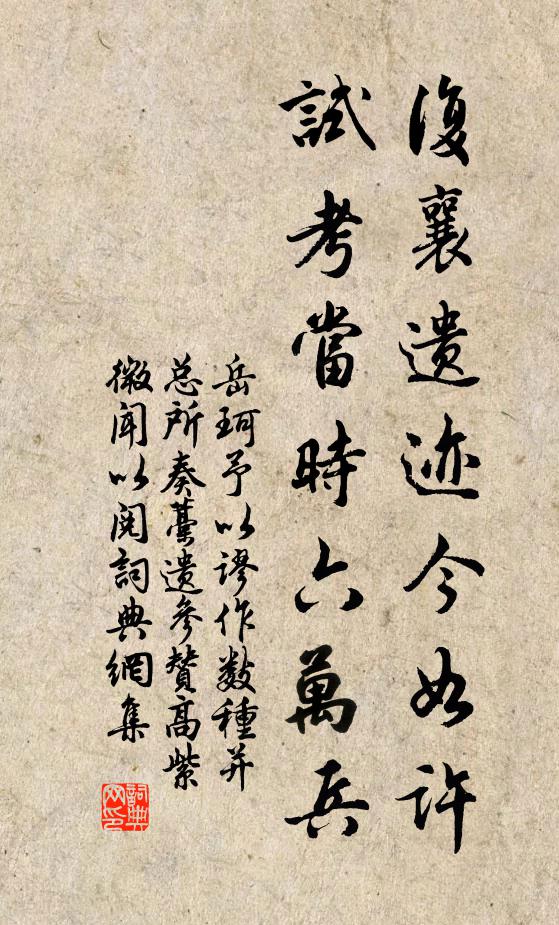 復襄遺迹今如許
試考當時六萬兵
岳珂予以謬作數種并
总所奏藁遺參贊高紫
微閒以閱詞典網集
詞典
网印